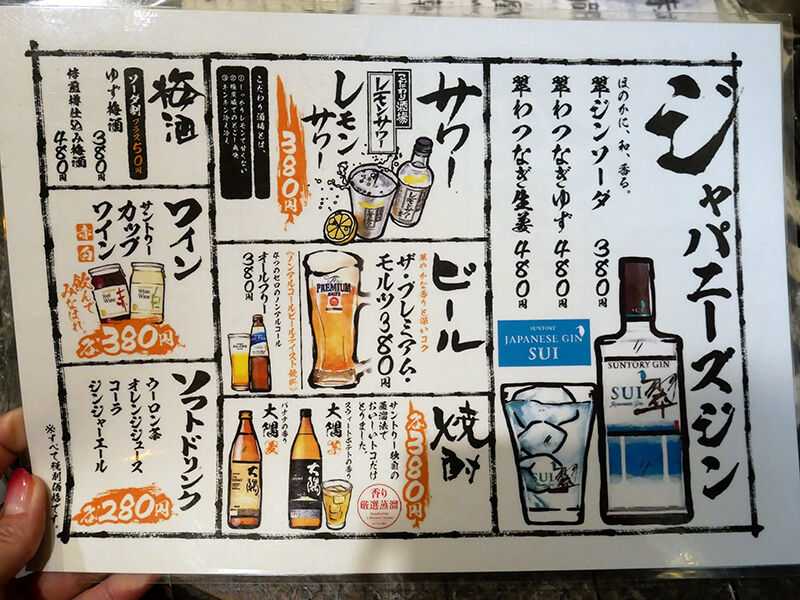 ジャパニーズジン
ほのかに、和、香る。
翠ジンソーダ 380円
翠わつなぎゆず 480円
翠わつなぎ生姜 480円
SUNTORY
JAPANESE GIN
SUI
SUNTORY GIN
SUI
翠
Japanese Gin
SUI
サワー
こだわり酒場
レモンサワー
レモン
サワー
380円
こだわり酒場とは、
ビール
華やかな香りと深いコク
ザ・プレミアム・
モルツ380円
PREMIUM
MALT'S
(ノンアルコールビールテイスト飲料)
オールフリー
4つのゼロのノンアルコール
380円
焼酎
各380円
サントリー独自の
蒸溜法で
おいしいトコだけ
とりました。
香り
厳選蒸溜
スウィートポテトの香り
大隅芋
バナナの香り
大隅麦
大隅
大隅
梅酒
ソーダ割 プラス50円
ゆず梅酒
380円
焙煎樽仕込み梅酒
480円
ワイン
サントリー
カップ
ワイン
赤 白
飲んで
みなはれ
Red
Wine
White
Wine
各380円
ソフトドリンク
ウーロン茶
オレンジジュース
コーラ
ジンジャーエール
各280円
※すべて税別価格です。